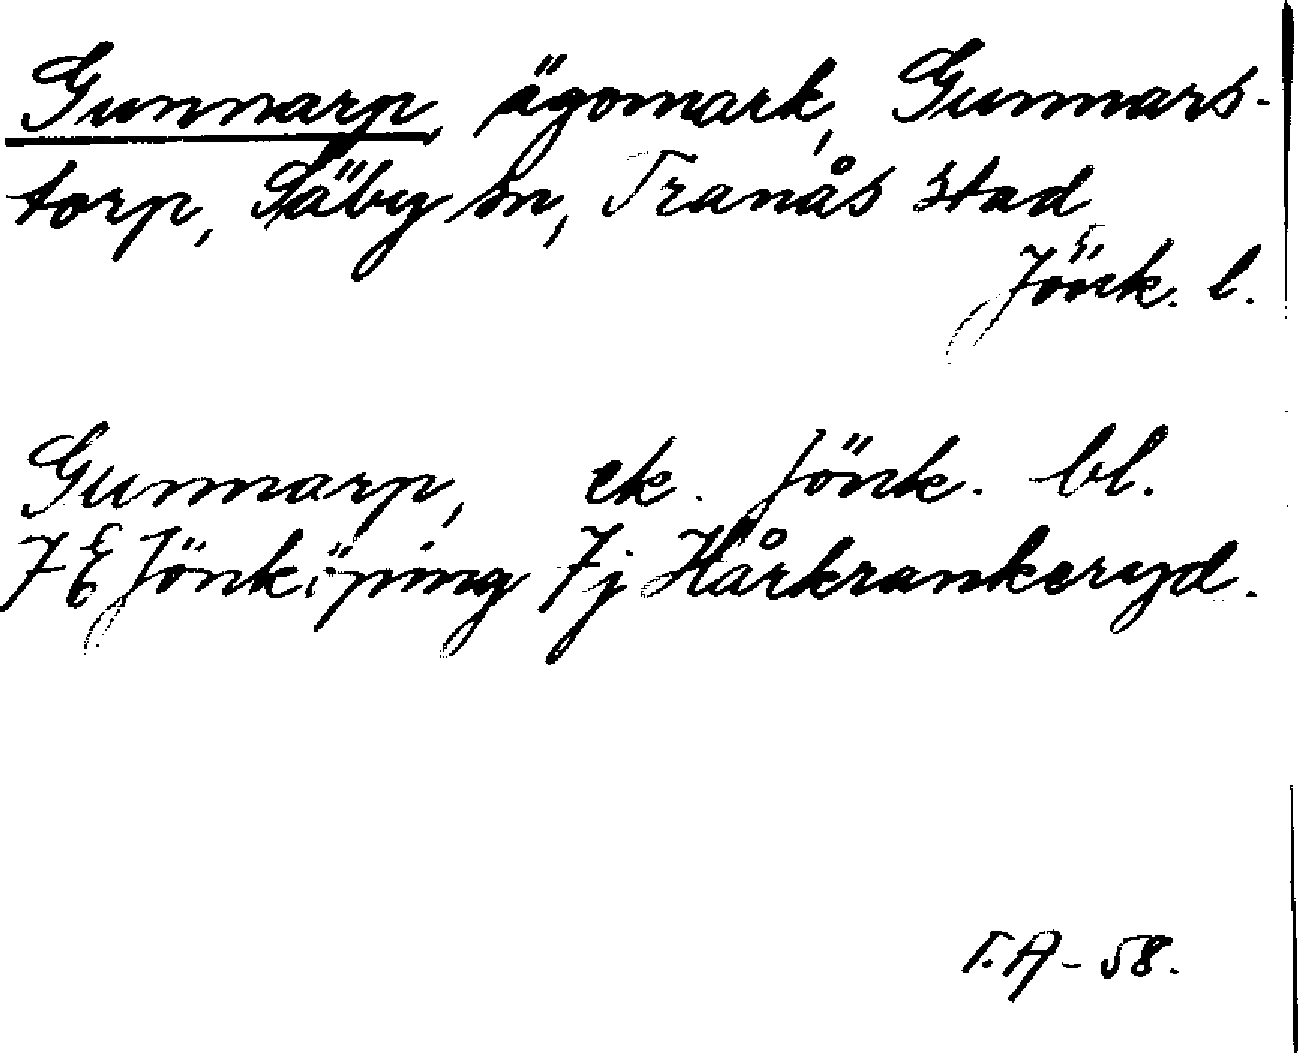 Gunnarp, ägomark, Gunnars-
torp, Säby sn, Tranås stad
Jönk. l.
Gunnarp, ek. Jönk. bl.
7 E Jönköping 7j Hårkrankeryd.
T.A - 58.